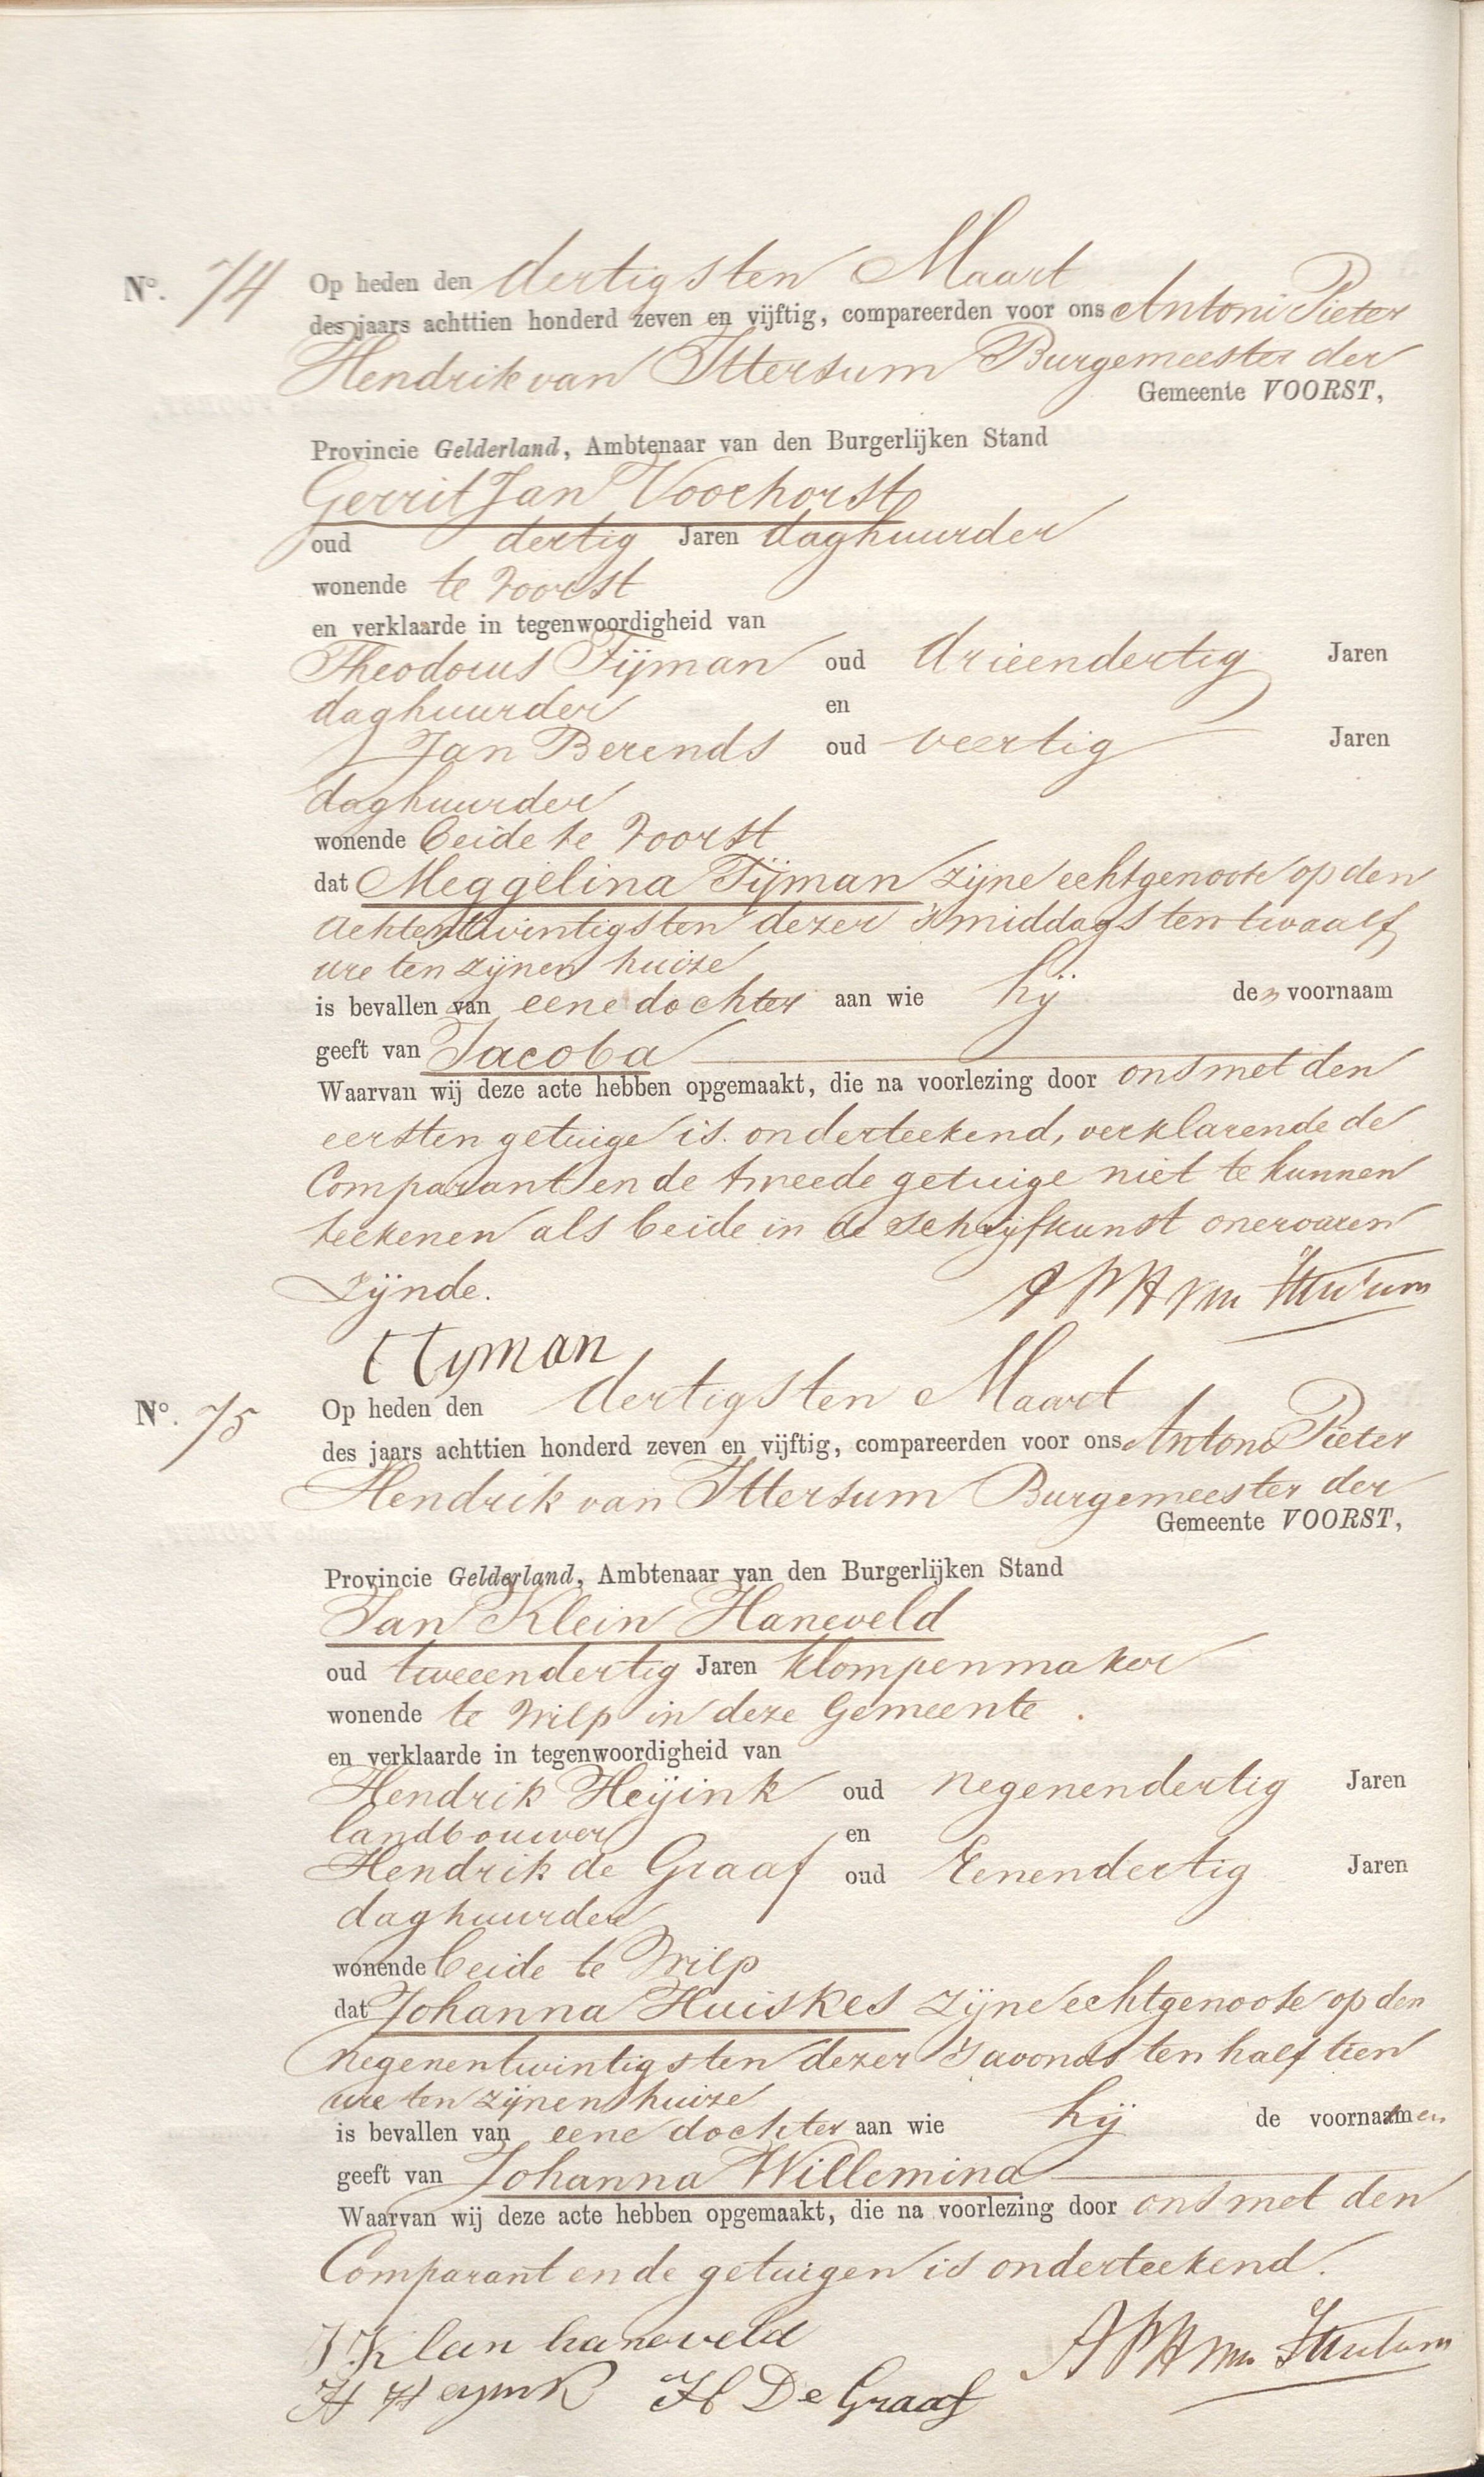 N°. 74 Op heden den dertigsten Maart
des jaars achttien honderd zeven en vijftig, compareerden voor ons Antoni Pieter
Hendrik van Ittersum Burgemeester der
Gemeente VOORST,
Provincie Gelderland, Ambtenaar van den Burgerlijken Stand
Gerrit Jan Voorhorst
oud dertig Jaren daghuurder
wonende te Voorst
en verklaarde in tegenwoordigheid van
Theodorus Tijman oud drieendertig Jaren
daghuurder en
Jan Berends oud veertig Jaren
daghuurder
wonende beide te Voorst
dat Meggelina Tijman zijne echtgenoote op den
achtentwintigsten dezer 's middags ten twaalf
ure ten zijnen huize
is bevallen van eene dochter aan wie hij den voornaam
geeft van Jacoba
Waarvan wij deze acte hebben opgemaakt, die na voorlezing door ons met den
eersten getuige is onderteekend, verklarende de
Comparant en de tweede getuige niet te kunnen
teekenen als beide in de schrijfkunst onervaren
zijnde. APH van Ittersum
T Tyman
N°. 75 Op heden den dertigsten Maart
des jaars achttien honderd zeven en vijftig, compareerden voor ons Antoni Pieter
Hendrik van Ittersum Burgemeester der
Gemeente VOORST,
Provincie Gelderland, Ambtenaar van den Burgerlijken Stand
Jan Klein Haneveld
oud tweeendertig Jaren klompenmaker
wonende te Wilp in deze Gemeente.
en verklaarde in tegenwoordigheid van
Hendrik Heijink oud negenendertig Jaren
landbouwer en
Hendrik de Graaf oud Eenendertig Jaren
daghuurder
wonende beide te Wilp
dat Johanna Huiskes zijne echtgenoote op den
negenentwintigsten dezer 's avonds ten half tien
ure ten zijnen huize
is bevallen van eene dochter aan wie hij de voornamen
geeft van Johanna Willemina
Waarvan wij deze acte hebben opgemaakt, die na voorlezing door ons met den
Comparant en de getuigen is onderteekend.
J. Klan haneveld APH van Ittersum
H Heyink H De Graaf